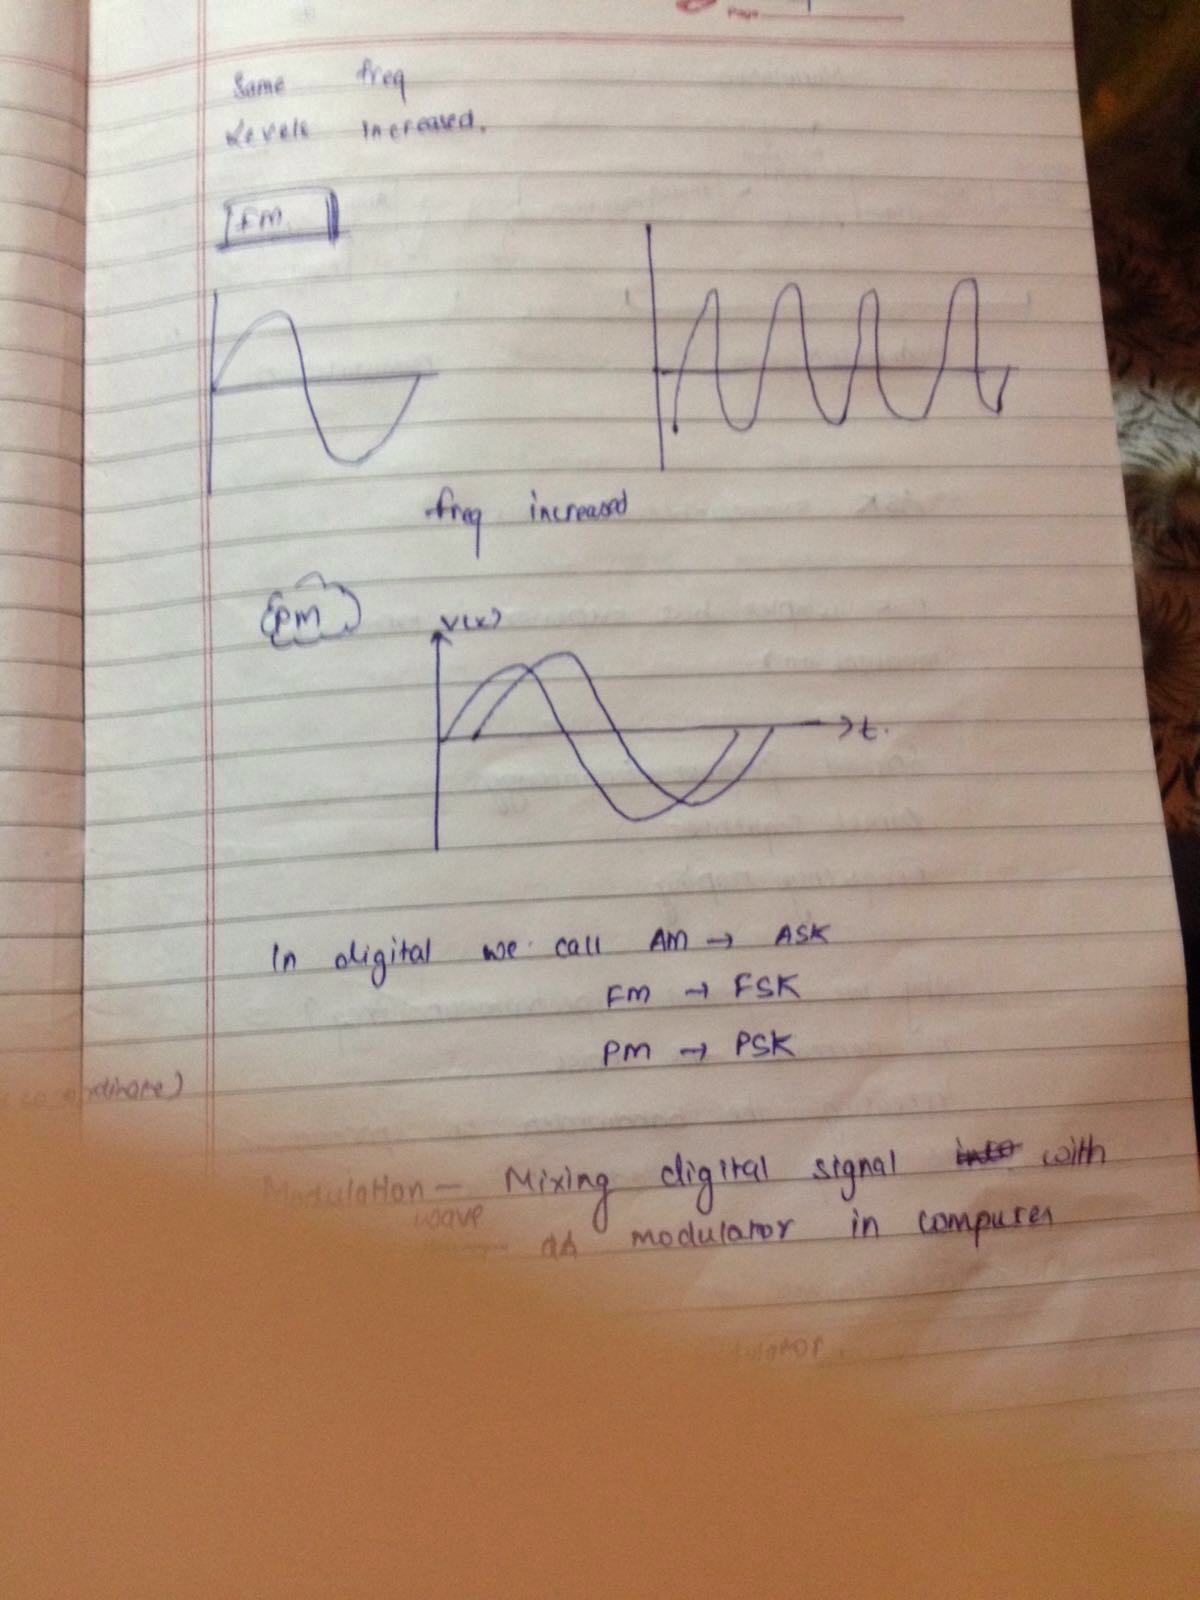 Page
Same freq
Levels increased.
FM
freq increased
PM
V(x)
t.
In digital we call AM → ASK
FM → FSK
PM → PSK
Modulation — Mixing digital signal with
wave
modulator in computer